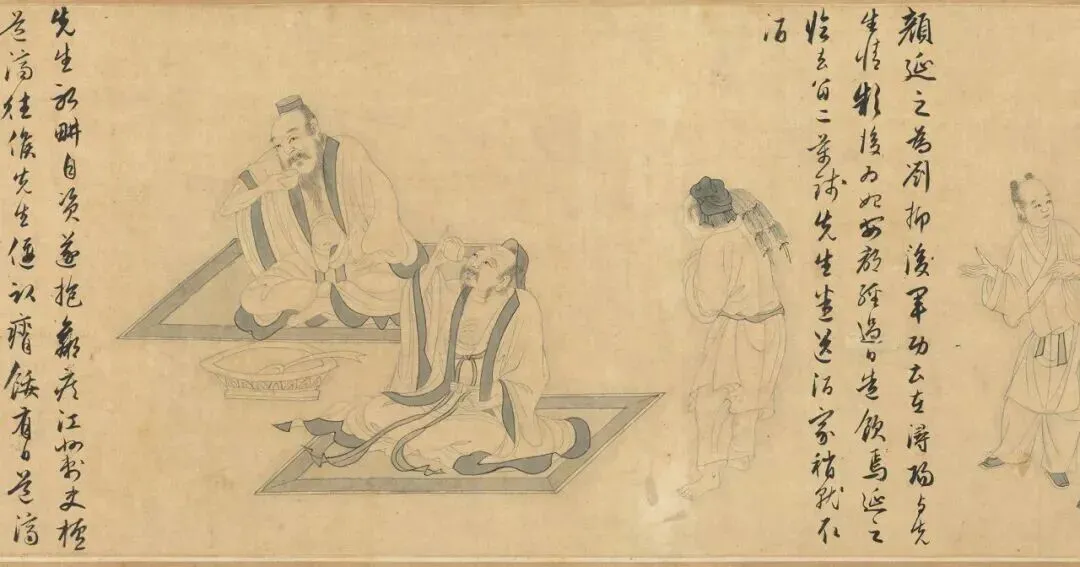 顏延之為劉柳後軍功曹在潯陽与先
生情款後为始安郡經過日造飲焉延之
臨去留二萬錢先生悉送酒家稍就取
酒
先生躬耕自資遂抱羸疾江州刺史檀
道濟往候先生偃臥瘠餒有日道濟